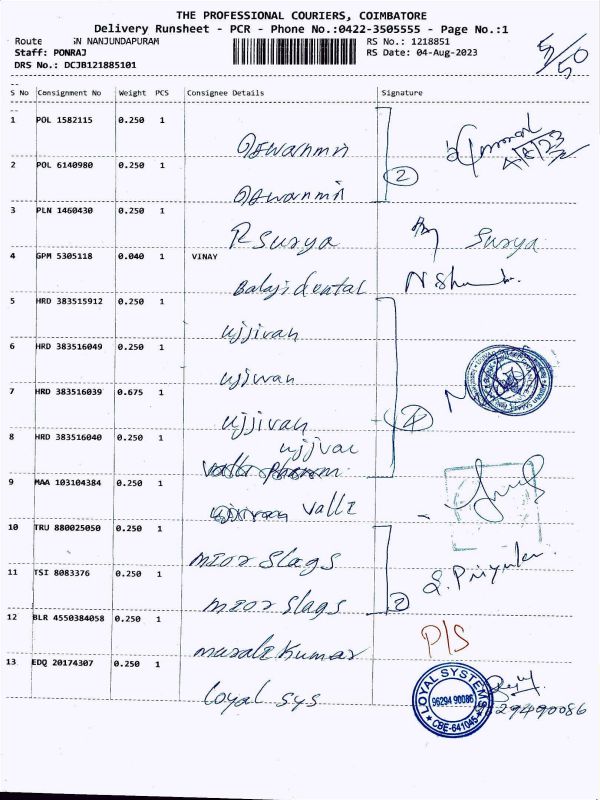 THE PROFESSIONAL COURIERS, COIMBATORE
Delivery Runsheet - PCR - Phone No.:0422-3505555 - Page No.:1
Route GN NANJUNDAPURAM RS No.: 1218851
Staff: PONRAJ RS Date: 04-Aug-2023
DRS No.: DCJB121885101
S No Consignment No Weight PCS Consignee Details Signature
1 POL 1582115 0.250 1
2
2 POL 6140980 0.250 1
3 PLN 1460430 0.250 1
R Surya Surya
4 GPM 5305118 0.040 1 VINAY
Balaji dental
5 HRD 383515912 0.250 1
ujjivan
6 HRD 383516049 0.250 1
ujivan
7 HRD 383516039 0.675 1
ujjivan 4
8 HRD 383516040 0.250 1
ujjvan
9 MAA 103104384 0.250 1
valli
10 TRU 880025050 0.250 1
mior slags
11 TSI 8083376 0.250 1
mior slags 2
S. Priyanka
12 BLR 4550384058 0.250 1
P/S
murali kumar
13 EDQ 20174307 0.250 1
loyal sys
LOYAL SYSTEMS
96294 90086
CBE-641045